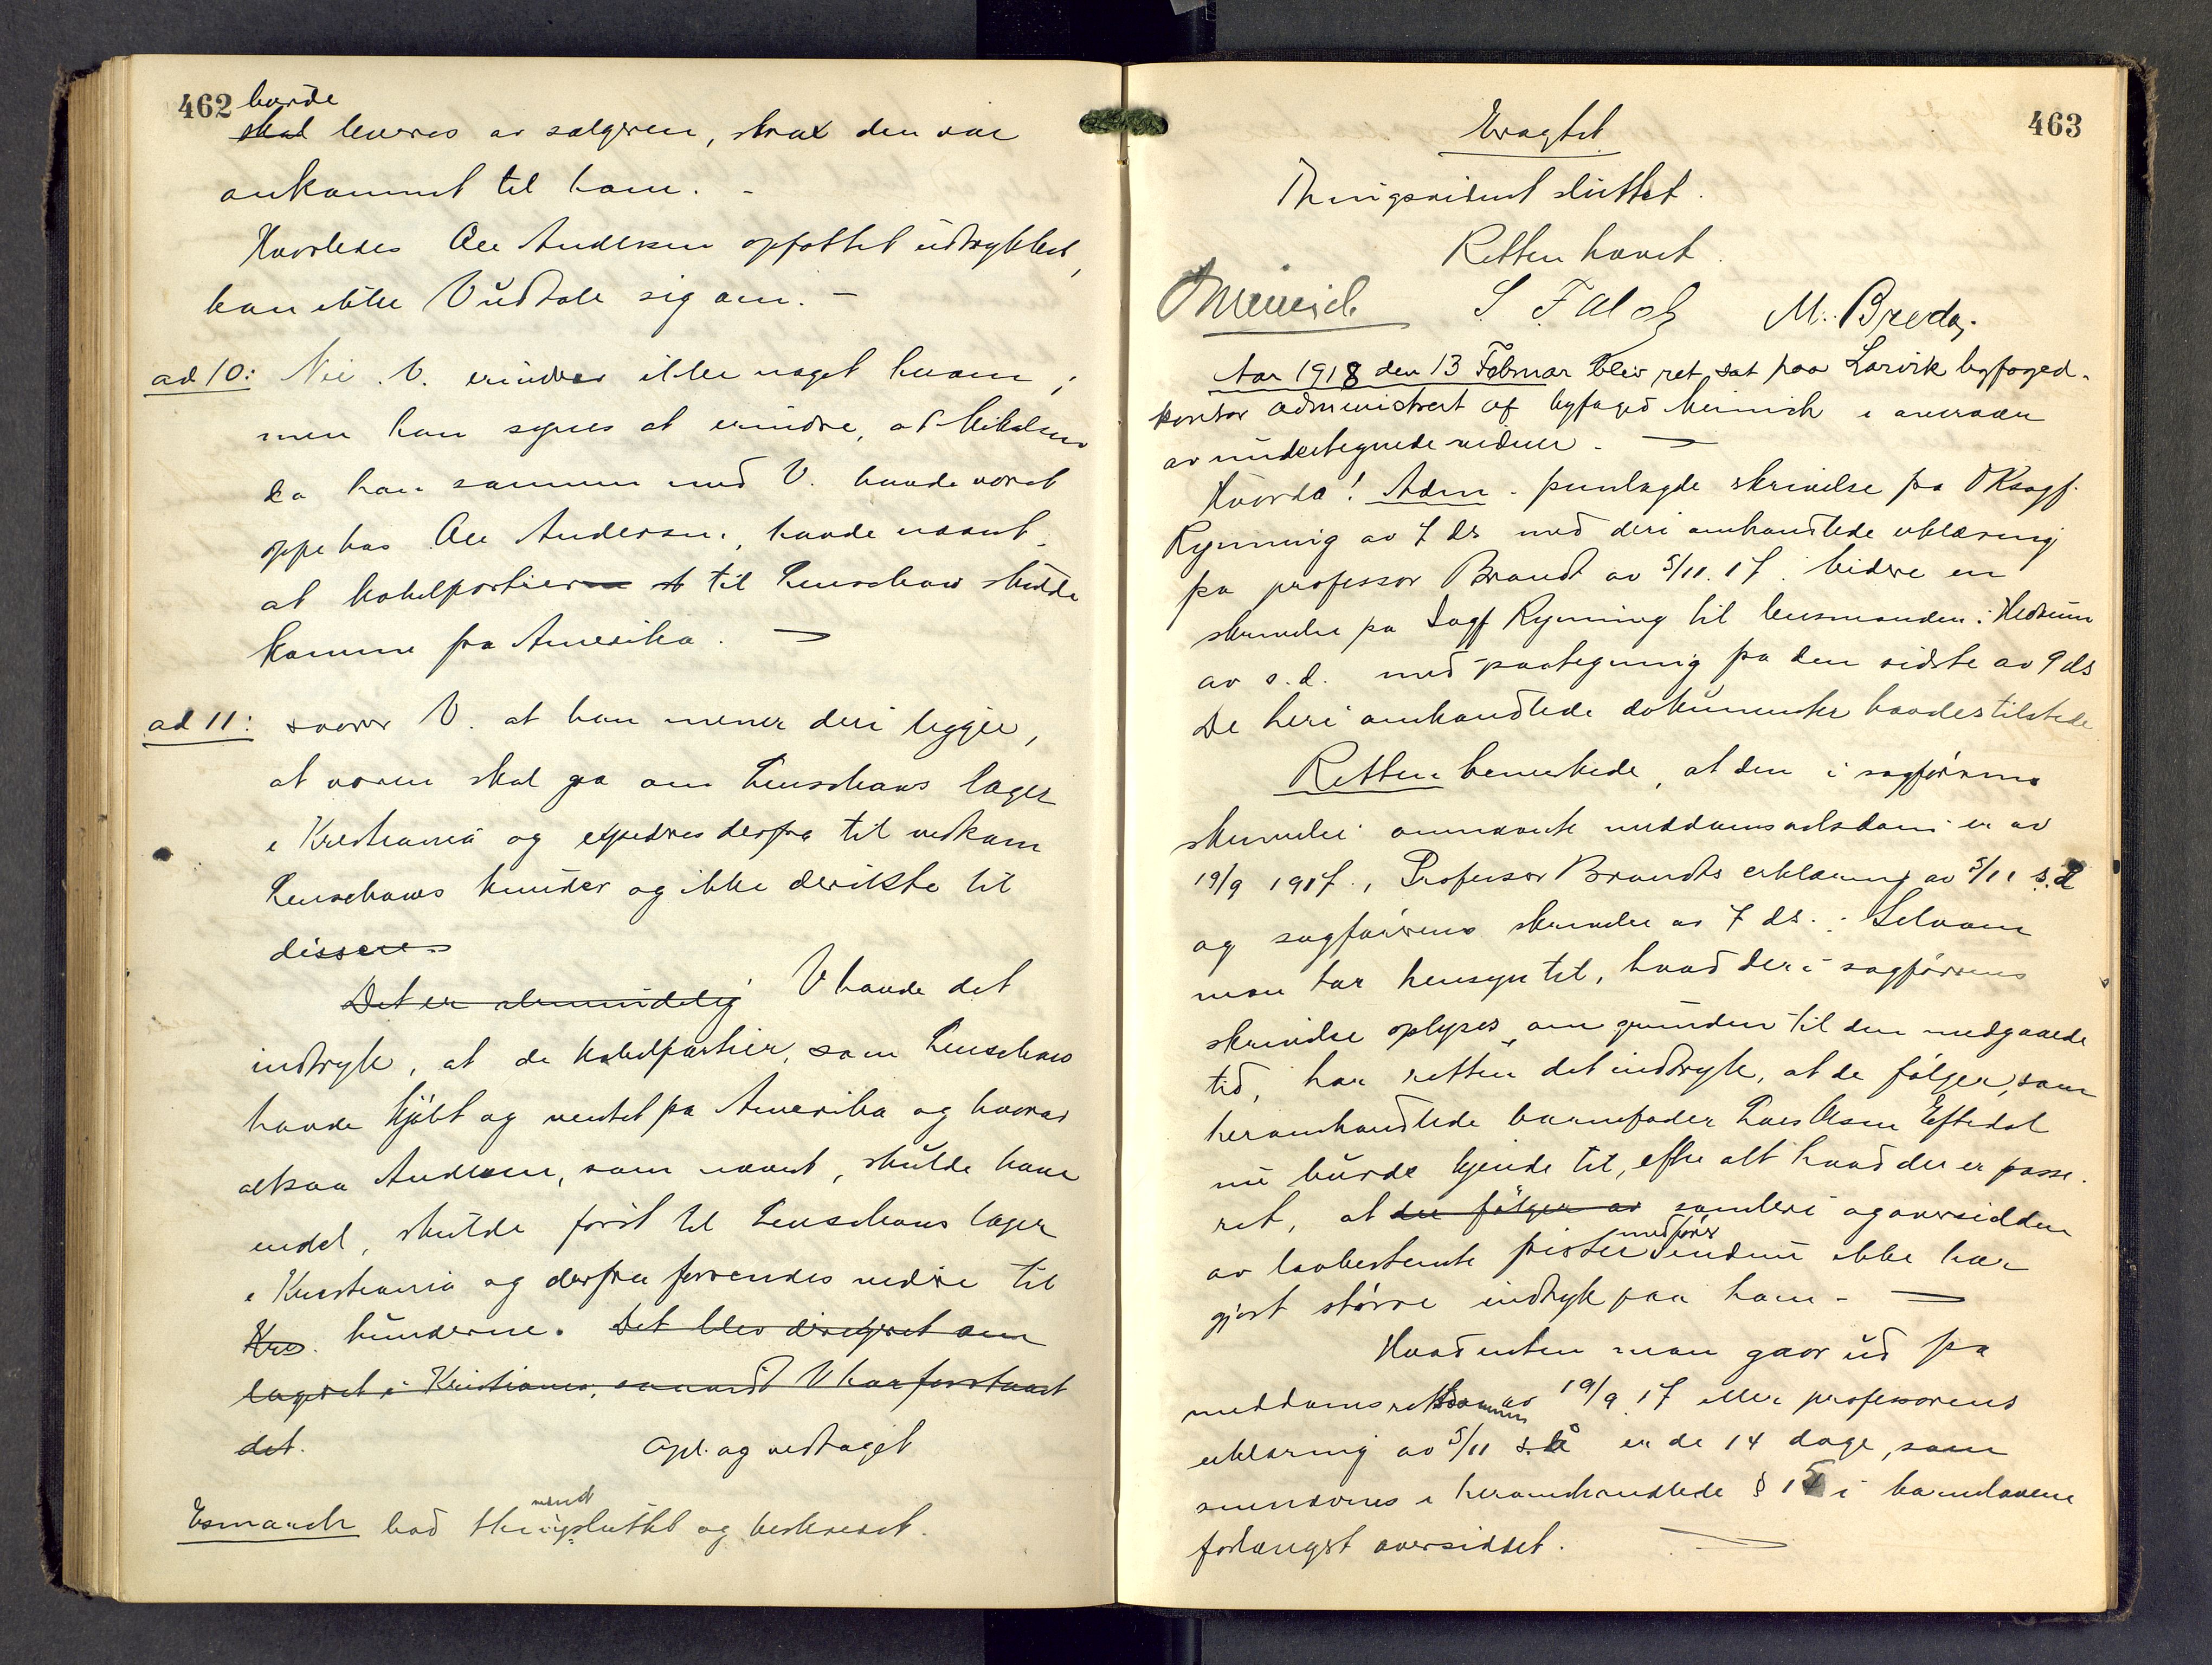 462 burde
skal leveres av sælgeren, strax den var
ankommet til ham. -
Hvorledes Ole Andersen opfattet udtrykket,
kan ikke V udtale sig om. -
ad 10: Nei. V. erindrer ikke noget herom;
men han synes at erindre, at Mikelsen
da han sammen med V. havde været
oppe hos Ole Andersen, havde nævnt
at kabelpartierne til Lenschow skulde
komme fra Amerika.
ad 11: svarer V. at han mener deri ligger,
at varen skal gå om Lenschows lager
i Kristiania og expederes derfra til vedkom
Lenschows kunder og ikke direkte til
disse
Det er almindelig V havde det
indtryk, at de kabelpartier, som Lenschow
havde kjøbt og ventet fra Amerika og hvorav
altsaa Andersen, som nævnt, skulde have
endel, skulde først til Lenschows lager
i Kristiania og derfra forsendes videre til
Krs. kunderne. Det blev om
lageret i Kristiania, V har forstaaet
det.
Opl. og vedtaget
vidnet
Esmarch bad thingsluttet og beskrevet.
463
Eragtet
Thingsvidnet sluttet.
Retten hævet.
Heinrich S. Falch M. Breda,
Aar 1918 den 13 Februar blev ret sat paa Larvik byfoged-
kontor administrert af byfoged Heinrich i overvær
av undertegnede vidner.
Hvorda! Adm. fremlagde skrivelse fra ORsagf.
Rynning av 7 ds med deri omhandlede erklæring
fra professor Brandt av 5/11. 17. Videre en
skrivelse fra Sagf Rynning til lensmanden i Hedrum
av s.d. med paategning fra den sidste av 9 ds
De heri omhandlede dokumenter havdes tilstede
Retten bemerkede, at den i sagførerens
skrivelse omnævnte meddomsretsdom er av
19/9 1917., Professor Brandts erklæring av 5/11 s.å
og sagførerens skrivelse av 7 ds. Selvom
man tar hensyn til, hvad der i sagførerens
skrivelse oplyses om grunden til den medgaaede
tid, har retten det indtryk, at de følger, som
heromhandlede barnefader Lars Olsen Eftedal
nu burde kjende til, efter alt hvad der er passe-
ret, at der følger av somleri og oversidden
av lovbestemte frister medfører endnu ikke har
gjort større indtryk paa ham. -
Hvad enten man gaar ud fra
meddomsrettsdommen av 19/9 17 eller professorens
erklæring av 5/11 s.å er de 14 dage, som
omnævnes i heromhandlede § 15 i barnelovene
forlængst oversiddet.